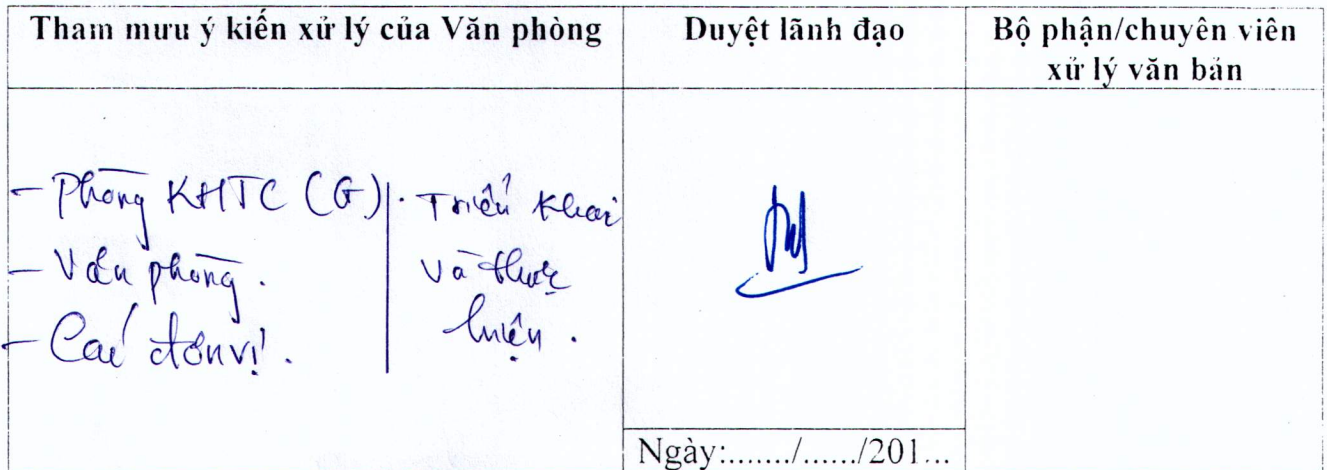 Tham mưu ý kiến xử lý của Văn phòng
Duyệt lãnh đạo
Bộ phận/chuyên viên
xử lý văn bản
- Phòng KHTC (G)
- Văn phòng.
- Các đơn vị.
. Triển khai
và thực
hiện.
Ngày:......./....../201...